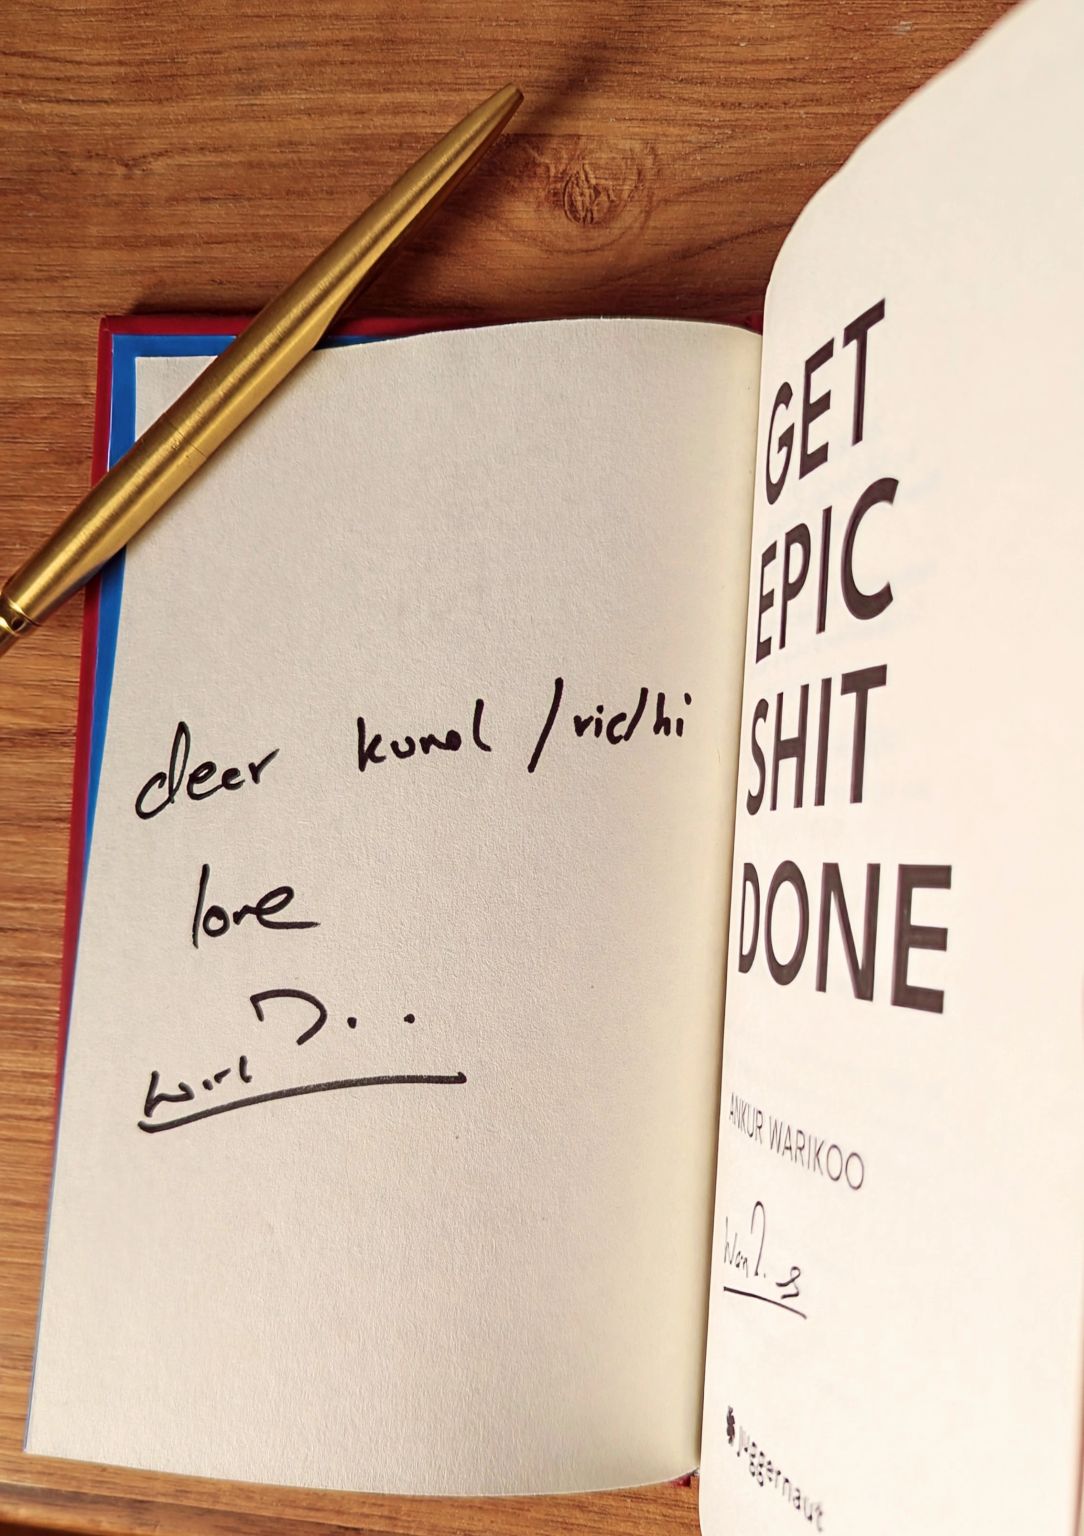 dear kunal / ridhi
love
GET
EPIC
SHIT
DONE
ANKUR WARIKOO
juggernaut